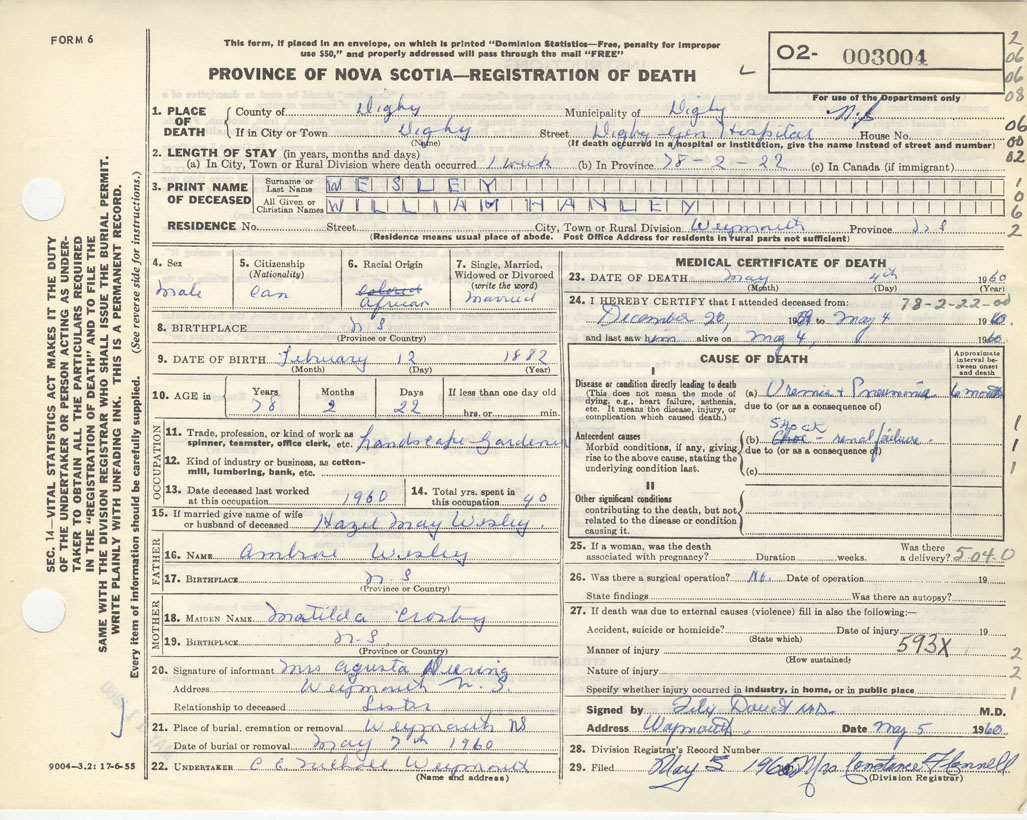 FORM 6
This form, if placed in an envelope, on which is printed "Dominion Statistics—Free, penalty for improper
use $50," and properly addressed will pass through the mail "FREE"
PROVINCE OF NOVA SCOTIA—REGISTRATION OF DEATH
O2- 003004
For use of the Department only
2
06
06
08
06
00
02
1
0
6
2
1. PLACE OF DEATH
County of Digby Municipality of Digby N.S
If in City or Town Digby Street Digby Gen Hospital House No.
(Name) (If death occurred in a hospital or institution, give the name instead of street and number)
2. LENGTH OF STAY (in years, months and days)
(a) In City, Town or Rural Division where death occurred 1 week (b) In Province 78-2-22 (c) In Canada (if immigrant)
3. PRINT NAME OF DECEASED
Surname or Last Name WESLEY
All Given or Christian Names WILLIAM HANLEY
RESIDENCE No. Street City, Town or Rural Division Weymouth Province N S
(Residence means usual place of abode. Post Office Address for residents in rural parts not sufficient)
4. Sex
male
5. Citizenship
(Nationality)
Can
6. Racial Origin
colored
African
7. Single, Married, Widowed or Divorced
(write the word)
Married
8. BIRTHPLACE N S
(Province or Country)
9. DATE OF BIRTH February 12 1882
(Month) (Day) (Year)
10. AGE in Years Months Days If less than one day old
78 2 22 hrs. or min.
OCCUPATION
11. Trade, profession, or kind of work as spinner, teamster, office clerk, etc. Landscape-Gardener
12. Kind of industry or business, as cotton-mill, lumbering, bank, etc.
13. Date deceased last worked at this occupation 1960
14. Total yrs. spent in this occupation 40
15. If married give name of wife or husband of deceased Hazel May Wesley
FATHER
16. NAME Ambrose Wesley
17. BIRTHPLACE N-S
(Province or Country)
MOTHER
18. MAIDEN NAME Matilda Crosby
19. BIRTHPLACE N-S.
(Province or Country)
20. Signature of informant Mrs Agusta
Address Weymouth N.S.
Relationship to deceased Sister
21. Place of burial, cremation or removal Weymouth NS
Date of burial or removal May 7th 1960
22. UNDERTAKER C C Weymouth
(Name and address)
MEDICAL CERTIFICATE OF DEATH
23. DATE OF DEATH May 4th 1960
(Month) (Day) (Year)
24. I HEREBY CERTIFY that I attended deceased from: 78-2-22-00
December 20, 1959 to May 4 1960.
and last saw him alive on May 4, 1960.
CAUSE OF DEATH
Approximate interval between onset and death
I
Disease or condition directly leading to death
(This does not mean the mode of dying, e.g., heart failure, asthenia, etc. It means the disease, injury, or complication which caused death.)
(a) Uremia & Pneumonia 6 months
due to (or as a consequence of)
Antecedent causes
Morbid conditions, if any, giving rise to the above cause, stating the underlying condition last.
(b) Shock - renal failure.
due to (or as a consequence of)
(c)
1
1
1
II
Other significant conditions
contributing to the death, but not related to the disease or condition causing it.
25. If a woman, was the death associated with pregnancy? Duration weeks. Was there a delivery? 5040
26. Was there a surgical operation? No. Date of operation 19
State findings Was there an autopsy?
27. If death was due to external causes (violence) fill in also the following:—
Accident, suicide or homicide? Date of injury 19
(State which)
Manner of injury 593X
(How sustained)
Nature of injury
Specify whether injury occurred in industry, in home, or in public place
2
2
1
Signed by M.D.
Address Weymouth Date May 5 1960.
28. Division Registrar's Record Number
29. Filed May 5 1960 Mrs Constance
(Division Registrar)
SEC. 14—VITAL STATISTICS ACT MAKES IT THE DUTY
OF THE UNDERTAKER OR PERSON ACTING AS UNDER-
TAKER TO OBTAIN ALL THE PARTICULARS REQUIRED
IN THE "REGISTRATION OF DEATH" AND TO FILE THE
SAME WITH THE DIVISION REGISTRAR WHO SHALL ISSUE THE BURIAL PERMIT.
WRITE PLAINLY WITH UNFADING INK. THIS IS A PERMANENT RECORD.
Every item of information should be carefully supplied. (See reverse side for instructions.)
9004—3.2: 17-6-55